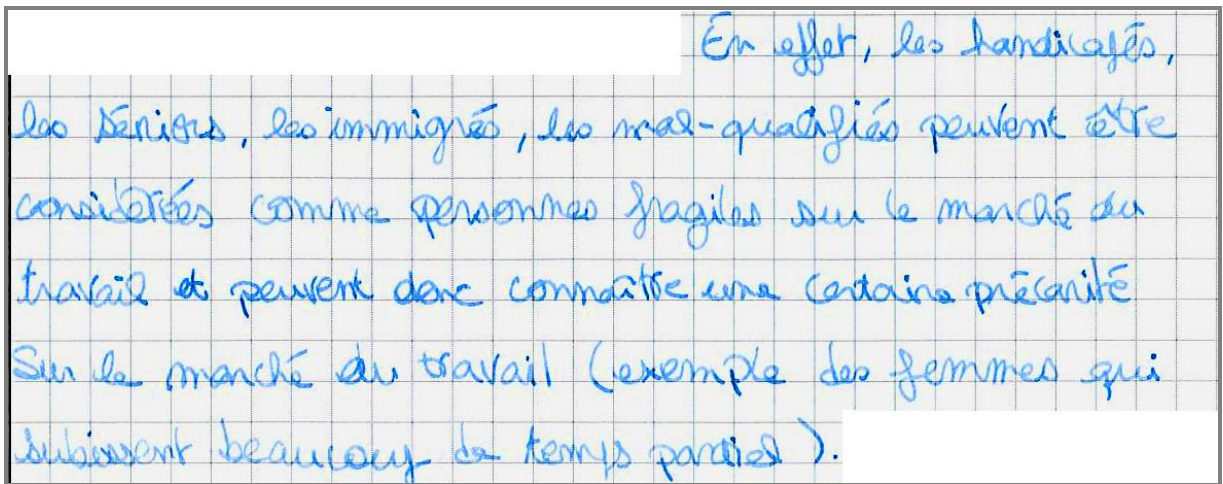 En effet, les handicapés,
les séniors, les immigrés, les mal-qualifiés peuvent être
considérées comme personnes fragiles sur le marché du
travail et peuvent donc connaître une certaine précarité
Sur le marché du travail (exemple des femmes qui
subissent beaucoup de temps partiel).